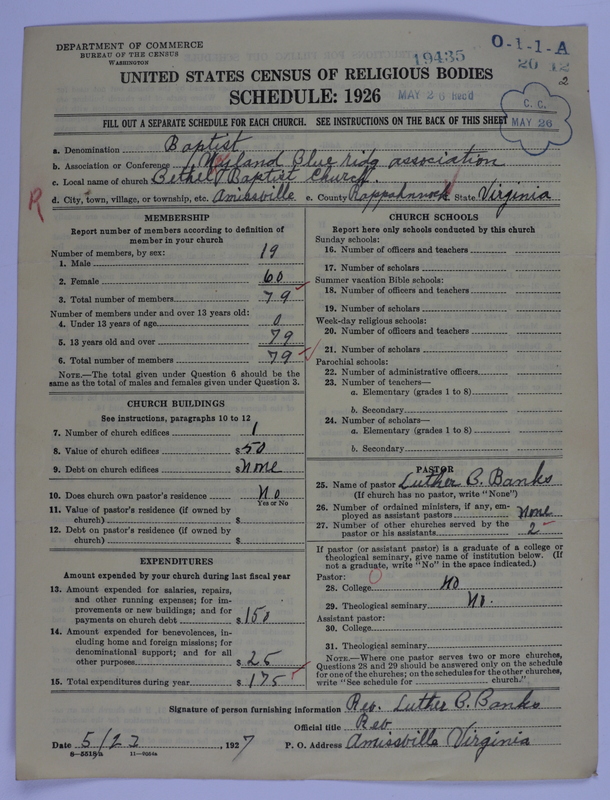 DEPARTMENT OF COMMERCE
BUREAU OF THE CENSUS
WASHINGTON
19435
O-1-1-A
20 12
2
UNITED STATES CENSUS OF RELIGIOUS BODIES
SCHEDULE: 1926
MAY 26 Recd
C. C.
MAY 26
FILL OUT A SEPARATE SCHEDULE FOR EACH CHURCH. SEE INSTRUCTIONS ON THE BACK OF THIS SHEET
a. Denomination Baptist
b. Association or Conference Wayland Blue ridg association
c. Local name of church Bethel Baptist Church.
R
d. City, town, village, or township, etc. Amissville e. County Rappahannock State Virginia
MEMBERSHIP
Report number of members according to definition of member in your church
Number of members, by sex:
1. Male 19
2. Female 60
3. Total number of members 79
Number of members under and over 13 years old:
4. Under 13 years of age 0
5. 13 years old and over 79
6. Total number of members 79
NOTE.—The total given under Question 6 should be the same as the total of males and females given under Question 3.
CHURCH BUILDINGS
See instructions, paragraphs 10 to 12
7. Number of church edifices 1
8. Value of church edifices $50
9. Debt on church edifices $None
10. Does church own pastor's residence No
Yes or No
11. Value of pastor's residence (if owned by
church) $
12. Debt on pastor's residence (if owned by
church) $
EXPENDITURES
Amount expended by your church during last fiscal year
13. Amount expended for salaries, repairs,
and other running expenses; for im-
provements or new buildings; and for
payments on church debt $150
14. Amount expended for benevolences, in-
cluding home and foreign missions; for
denominational support; and for all
other purposes $25
15. Total expenditures during year $175
CHURCH SCHOOLS
Report here only schools conducted by this church
Sunday schools:
16. Number of officers and teachers
17. Number of scholars
Summer vacation Bible schools:
18. Number of officers and teachers
19. Number of scholars
Week-day religious schools:
20. Number of officers and teachers
21. Number of scholars
Parochial schools:
22. Number of administrative officers
23. Number of teachers—
a. Elementary (grades 1 to 8)
b. Secondary
24. Number of scholars—
a. Elementary (grades 1 to 8)
b. Secondary
PASTOR
25. Name of pastor Luther C. Banks
(If church has no pastor, write "None")
26. Number of ordained ministers, if any, em-
ployed as assistant pastors None
27. Number of other churches served by the
pastor or his assistants 2
If pastor (or assistant pastor) is a graduate of a college or
theological seminary, give name of institution below. (If
not a graduate, write "No" in the space indicated.)
Pastor:
28. College No
29. Theological seminary No.
Assistant pastor:
30. College
31. Theological seminary
NOTE.—Where one pastor serves two or more churches,
Questions 28 and 29 should be answered only on the schedule
for one of the churches; on the schedules for the other churches,
write "See schedule for church."
Signature of person furnishing information Rev. Luther C. Banks
Official title Rev
Date 5/23, 1927 P. O. Address Amissville Virginia
8-5518a 11-9054a